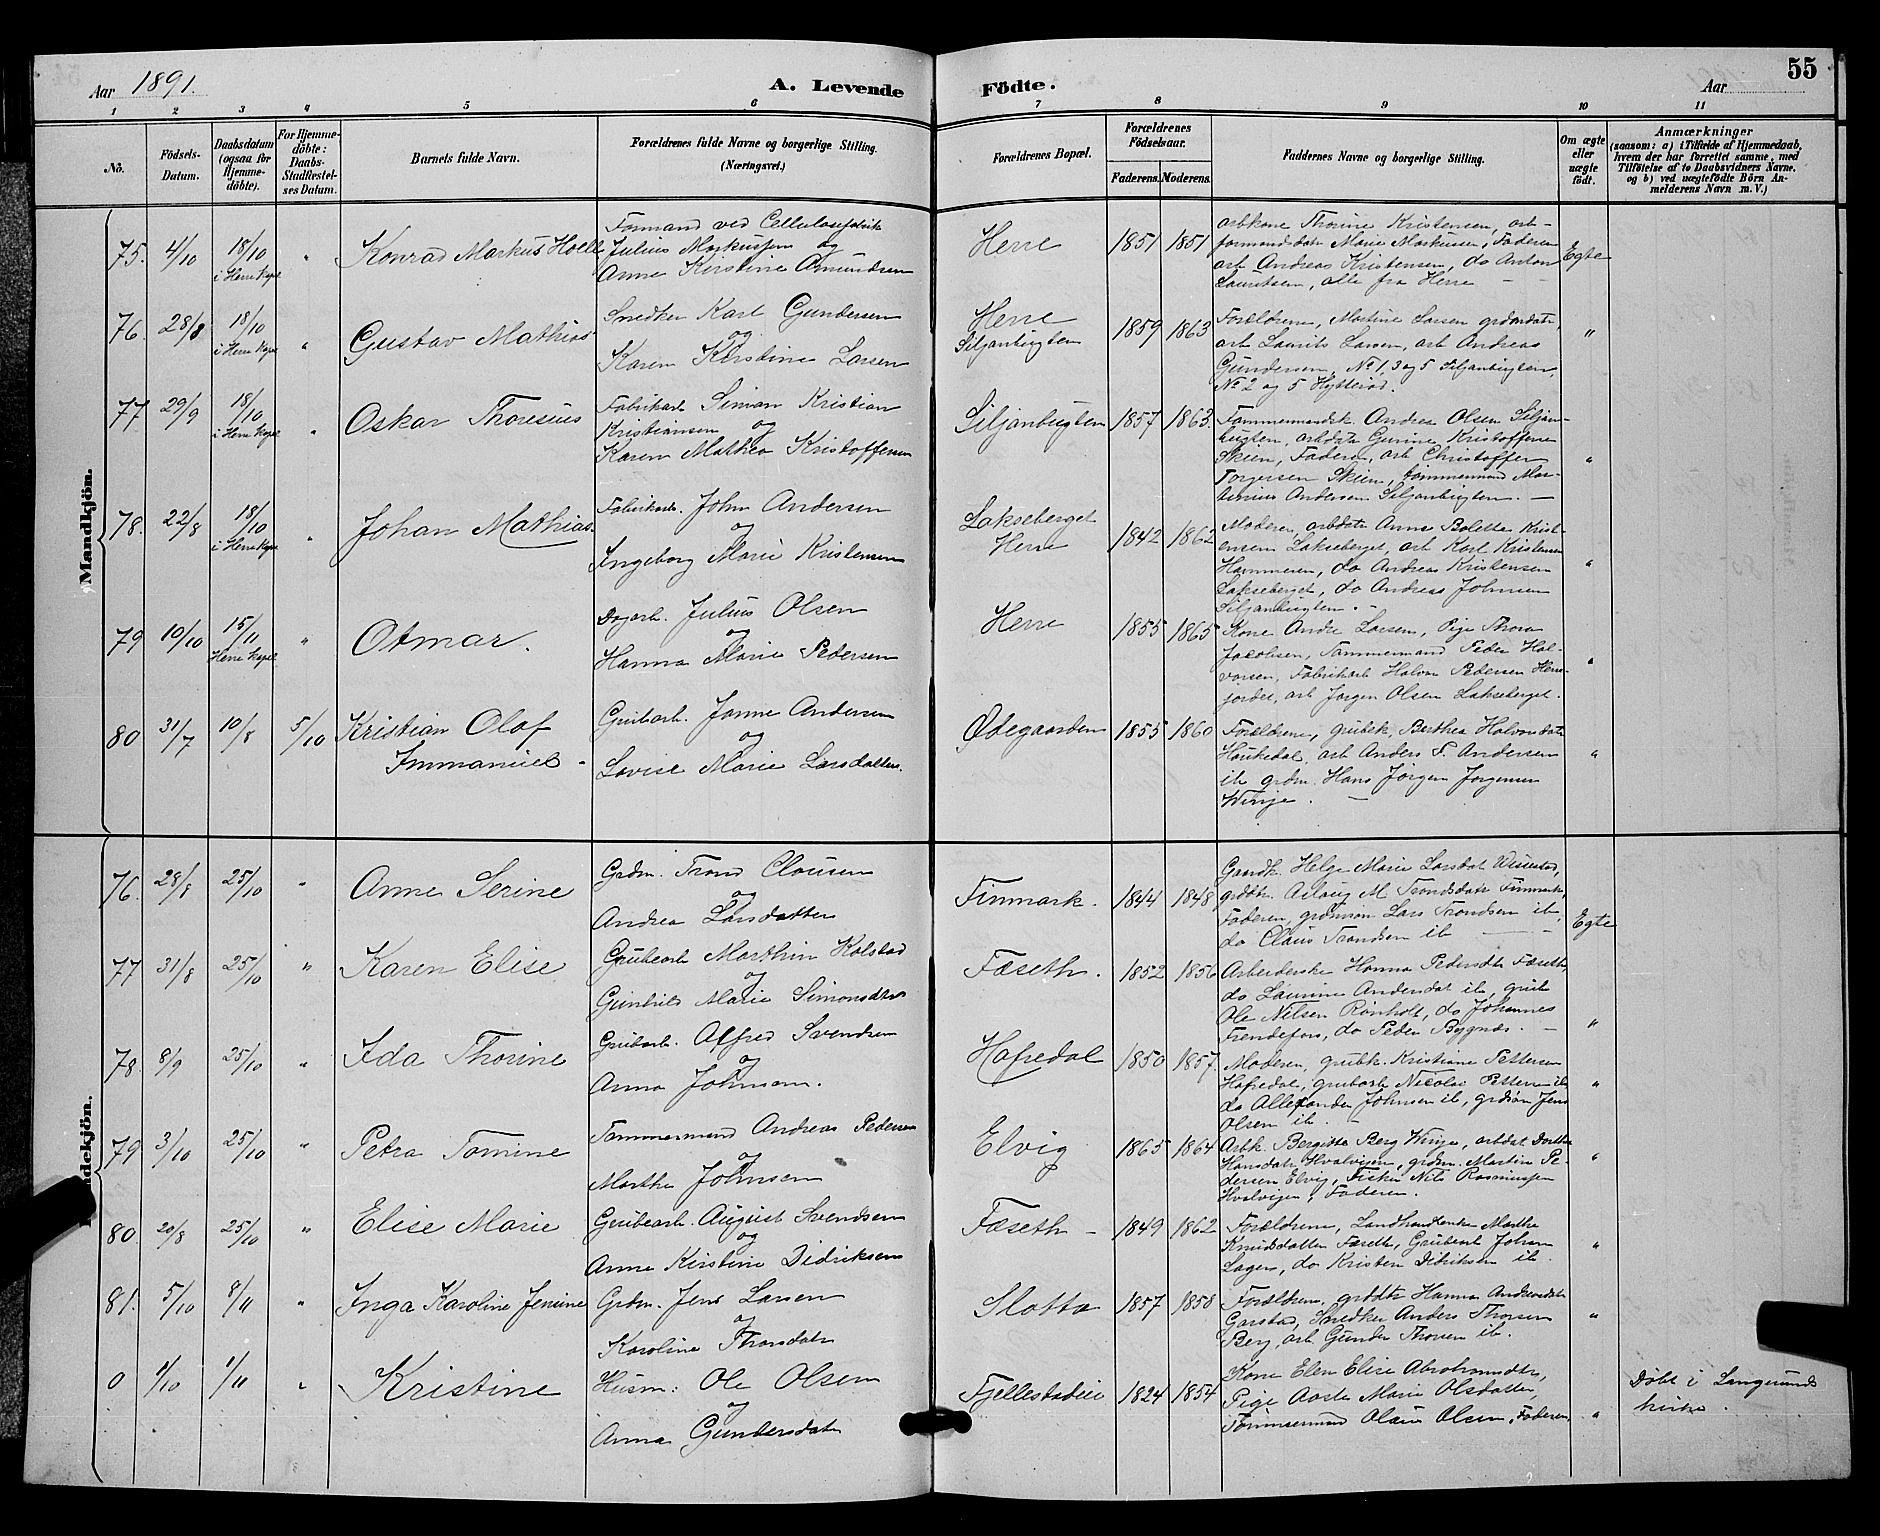 Aar 1891.
A. Levende Födte.
Aar
55
1 2 3 4 5 6 7 8 9 10 11
No.
Födsels-Datum.
Daabsdatum (ogsaa for Hjemme-döbte).
For Hjemme-döbte: Daabs-Stadfæstel-ses Datum.
Barnets fulde Navn.
Forældrenes fulde Navne og borgerlige Stilling. (Næringsvei.)
Forældrenes Bopæl.
Forældrenes Födselsaar.
Faderens. Moderens.
Faddernes Navne og borgerlige Stilling.
Om ægte eller uægte födt.
Anmærkninger
(saasom: a) i Tilfælde af Hjemmedaab, hvem der har forrettet samme, med Tilföielse af to Daabsvidners Navne, og b) ved uægtefödte Börn An-melderens Navn m. V.)
Mandkjön.
75. 4/10 18/10 i Herre Kapel " Konrad Markus Hoell
Formand ved Cellulosefabrik Julius Markussen og Anne Kirstine Amundsen
Herre 1851 1851
arbkone Thorine Kristensen, arb-formanddatr Marie Markussen, Faderen arb Andreas Kristensen, do Anton Lauritsen, alle fra Herre
Egte
76. 28/8 18/10 i Herre Kapel " Gustav Mathias
Snedker Karl Gundersen og Karen Kirstine Larsen
Herre Siljanbugten 1859 1863
Forældrene, Martine Larsen grdmdatr, arb Laurits Larsen, arb Andreas Gundersen, No 1, 3 og 5 Siljanbugten, No 2 og 5 Hytterød.
"
77. 29/9 18/10 i Herre Kapel " Oskar Thoresius
Fabrikarb Simon Kristian Kristiansen og Karen Mathea Kristoffersen
Siljanbugten 1857 1863.
Tømmermandsk. Andrea Olsen Siljan-bugten, arbdatr Gurine Kristoffersen Skien, Faderen, arb Christoffer Torgersen Skien, tømmermand Mar-tinius Andersen Siljanbugten.
"
78. 22/8 18/10 i Herre Kapel " Johan Mathias.
Fabrikarb. John Andersen og Ingeborg Marie Kristensen
Lakseberget Herre 1842 1862
Moderen, arbdatr Anne Bolette Krist-ensen Lakseberget, arb Karl Kristensen Hammeren, do Andreas Kristensen Lakseberget, do Andreas Johnsen Siljanbugten.
"
79 10/10 15/11 Herre Kapel " Otmar.
Dagarb. Julius Olsen og Hanna Marie Pedersen
Herre 1855 1865
Kone Andre Larsen, Pige Thora Jacobsen, Tømmermand Peder Hal-vorsen, Fabrikarb Halvor Pedersen Herre-jordet, arb Jørgen Olsen Lakseberget.
"
80 31/7 10/8 5/10 Kristian Olaf Immanuel
Grubarb. Janne Andersen og Lovise Marie Larsdatter.
Ødegaarden 1855 1860
Forældrene, grubek. Berthea Halvorsdatr Haukedal, arb Anders T. Andersen ib grdm. Hans Jørgen Jørgensen Winje.
"
Kvindekjön.
76. 28/8 25/10 " Anne Serine
Grdm. Trond Clausen og Andrea Larsdatter
Finmark. 1844 1848
Gaardk. Helge Marie Larsdat grddtr. Aslaug M. Trondsdatr Finmark, Faderen, grdmsøn Lars Trondsen ib, do Claus Trondsen ib
Egte
77 31/8 25/10 " Karen Elise
Grubearb Marthin Kolstad og Gunhild Marie Simonsdtr
Fæseth. 1852 1856
Arbeiderske Hanna Pedersdtr Fæseth, do Laurine Andersdat ib, grub Ole Nielsen Rønholt, do Johannes Trendefors, do Peder Bygnæs.
"
78. 8/9 25/10 " Ida Thorine
Grubarb. Alfred Svendsen og Anna Johnsen.
Hafredal 1850 1857.
Moderen, grubk. Kristiane Pettersen Hafredal, grubarb Nicolai Pettersen ib do Allexander Johnsen ib, grdsøn Jens Olsen ib.
"
79 3/10 25/10 " Petra Tomine
Tømmermand Andreas Pedersen og Marthe Johnsen
Elvig 1865 1864
Arbk. Bergitte Berg Winje, arbdat. Dorthe Hansdatr Hvalvigen, grdm. Martin Pe-dersen Elvig, Fisker Nils Rasmussen Hvalvigen, Faderen.
"
80. 20/8 25/10 " Elise Marie
Grubearb. August Svendsen og Anne Kirstine Didriksen
Fæseth 1849 1862
Forældrene, Landhandlerske Marthe Knudsdatter Fæseth, Grubearb Johan Lagen, do Kristen Didriksen ib.
"
81. 5/10 8/11 " Inga Karoline Jensine
Grdm. Jens Larsen og Karoline Thorsdatr
Slotta 1857 1858
Forældrene, grddtr Hanna Andreasdatr Garstad, Snedker Anders Thorsen Berg, arb Gunder Thorsen ib.
"
0 1/10 1/11 " Kristine
Husm: Ole Olsen og Anna Gundersdatr
Fjellestadeie 1824 1854
Kone Elen Elise Abrahamsdtr, Pige Aaste Marie Olsdatter, Tømmermand Olaus Olsen, Faderen,
"
Døbt i Langesunds kirke.